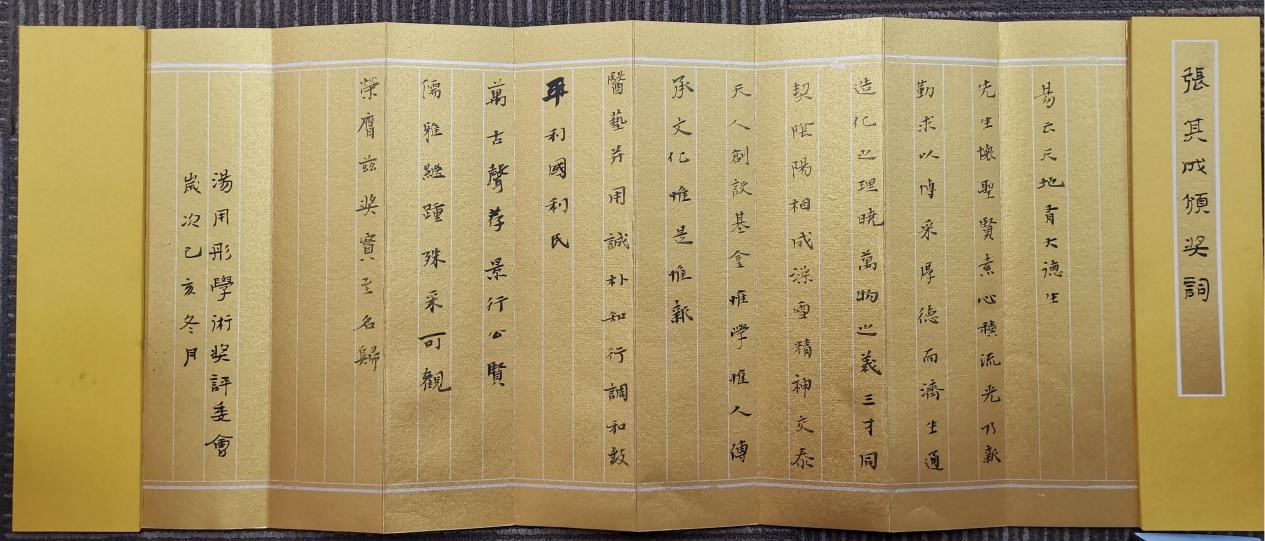 張其成頒奖詞
易云天地有大德生
先生懷聖賢素心積流光乃新
勤求以博采厚德而濟生通
造化之理曉萬物之義三才同
契陰陽相成澡雪精神交泰
天人創設基金惟學惟人傳
承文化惟是惟新
醫藝并用誠朴知行調和致
平利國利民
萬古聲荐景行公賢
儒雅繼踵殊采可觀
榮膺兹奖實至名歸
湯用彤學術奖評委會
歲次己亥冬月